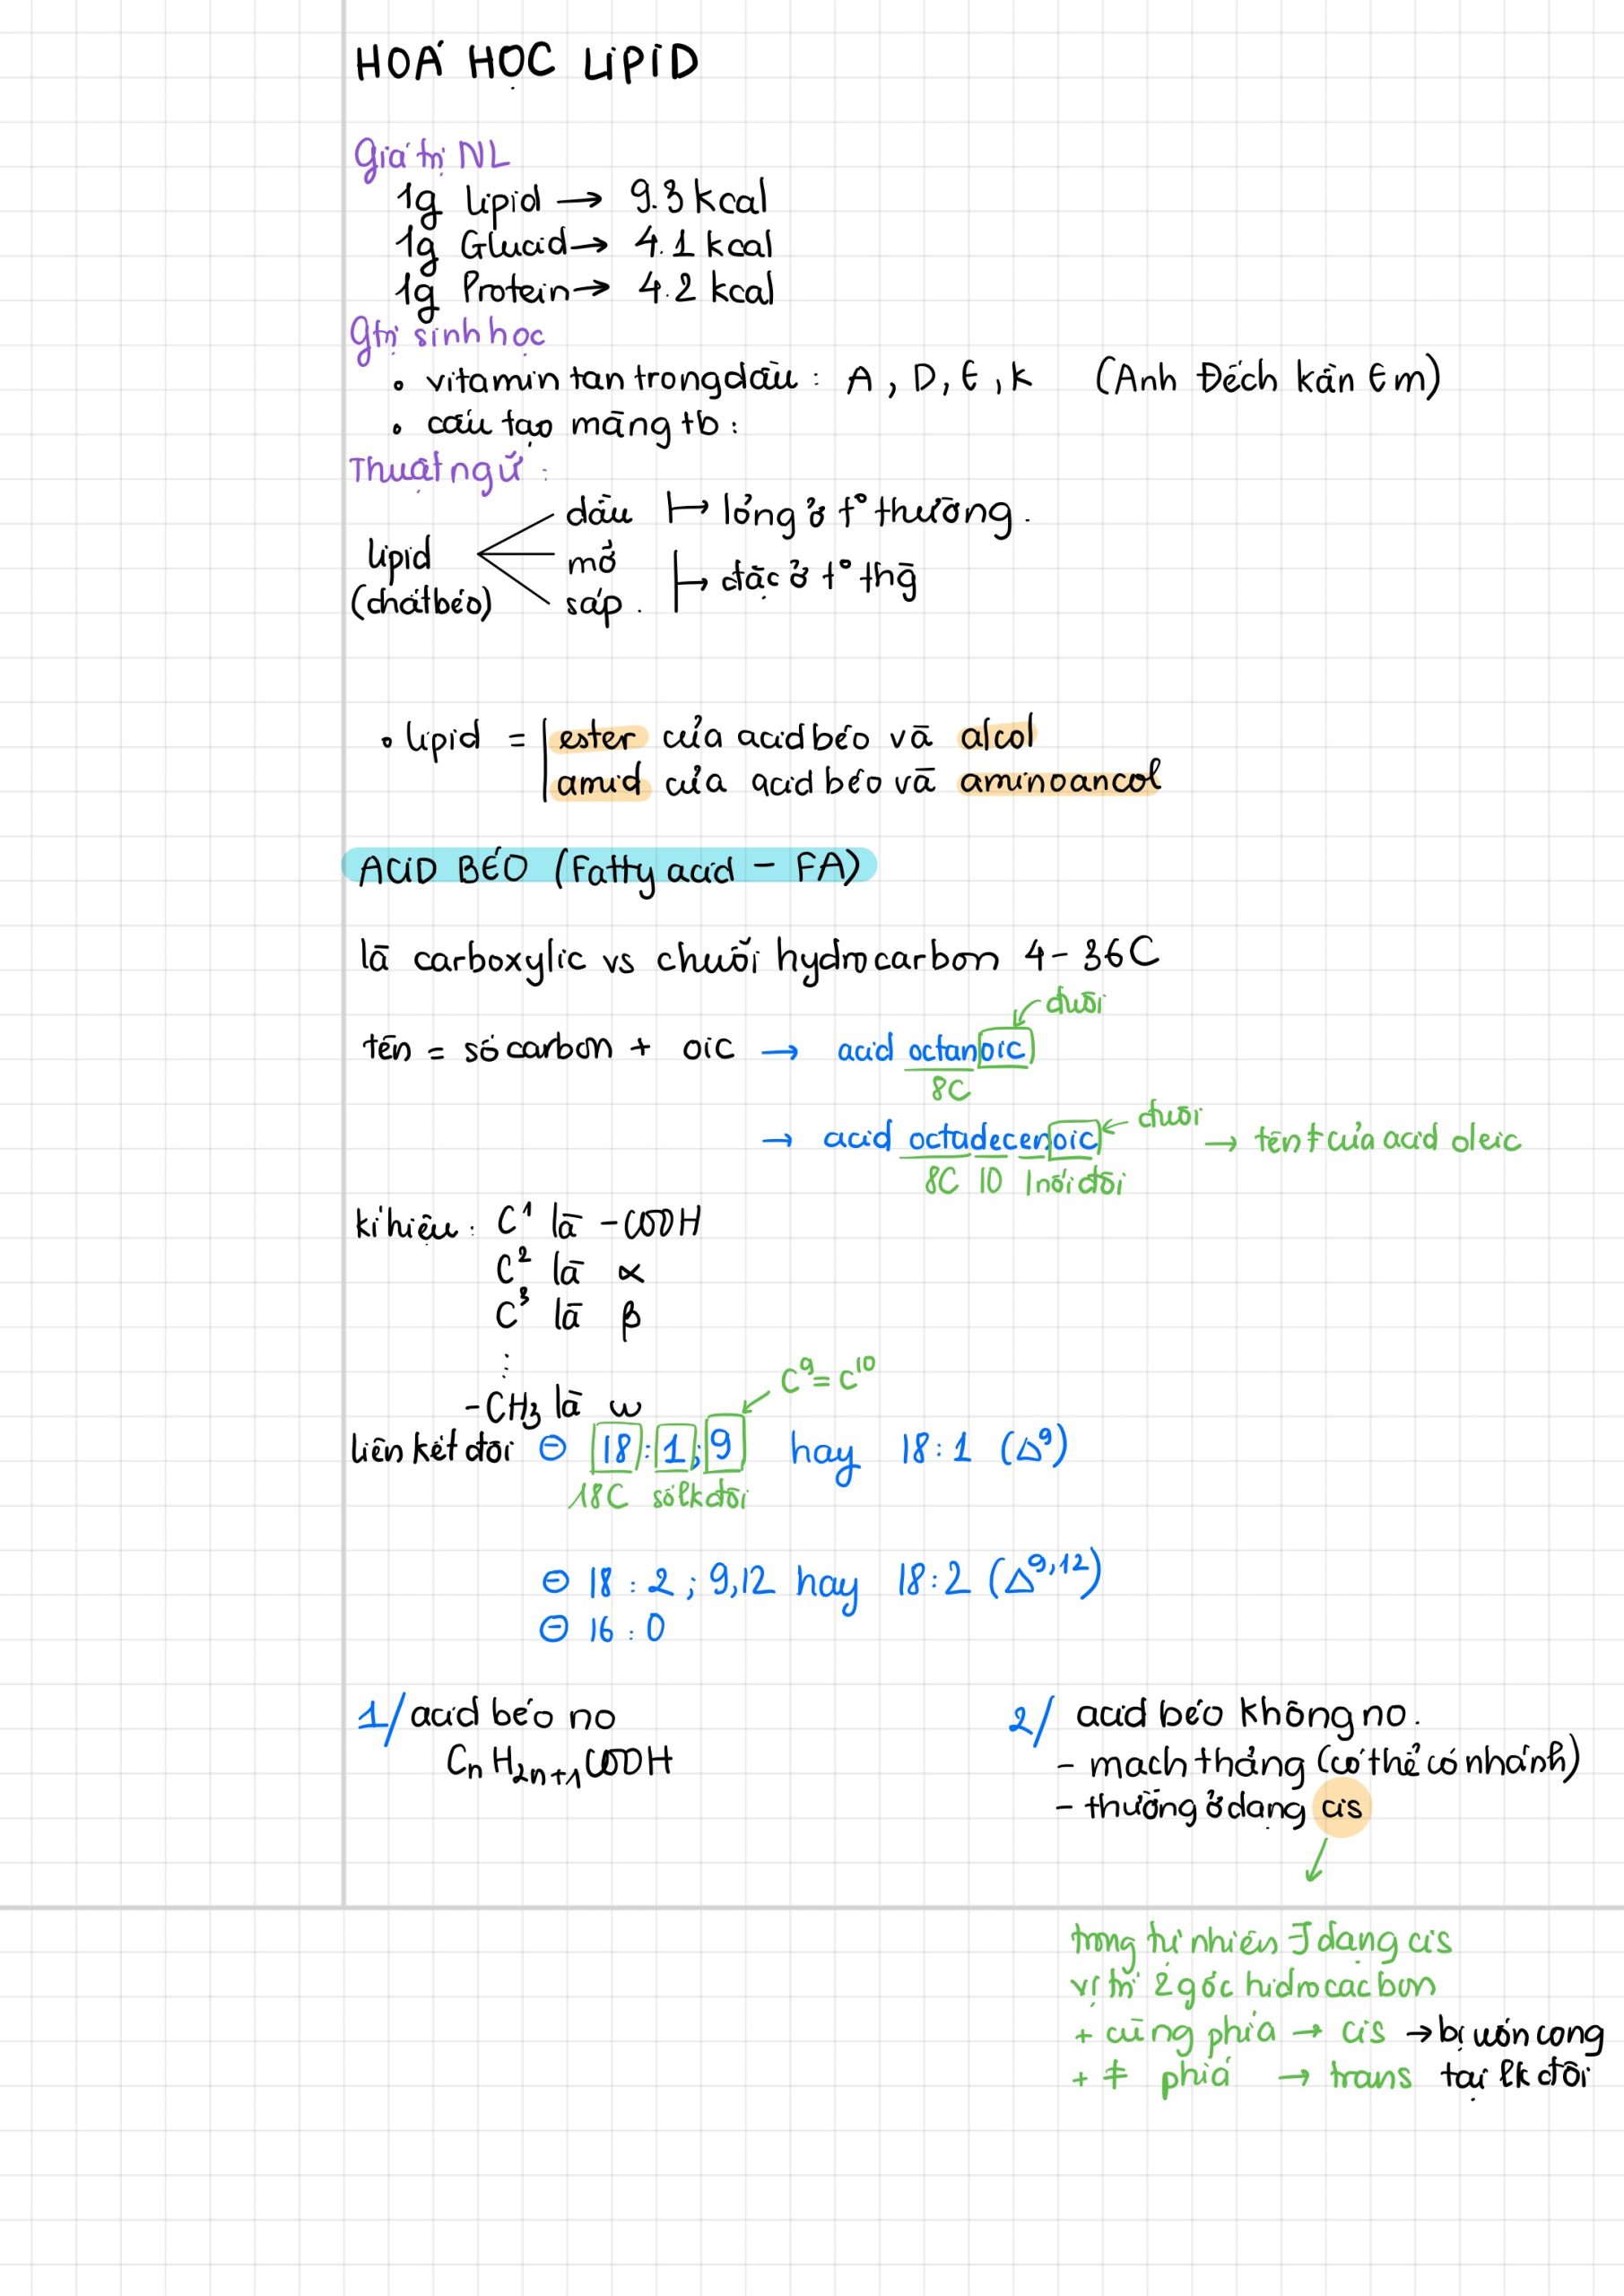 HOÁ HỌC LIPID
Giá trị NL
1g Lipid → 9.3 kcal
1g Glucid → 4.1 kcal
1g Protein → 4.2 kcal
Gtrị sinh học
• vitamin tan trong dầu : A, D, E, K (Anh Đếch kần Em)
• cấu tạo màng tb :
Thuật ngữ :
lipid (chất béo)
dầu ↦ lỏng ở t° thường.
mỡ
sáp.
↦ đặc ở t° thg̀
• lipid = ester của acid béo và alcol
amid của acid béo và aminoancol
ACID BÉO (Fatty acid - FA)
là carboxylic vs chuỗi hydrocarbon 4 - 36C
đuôi
tên = số carbon + oic → acid octanoic
8C
→ acid octadecenoic ← đuôi → tên ≠ của acid oleic
8C 10 1 nối đôi
kí hiệu : C¹ là -COOH
C² là α
C³ là β
⋮
-CH₃ là ω
C⁹ = C¹⁰
liên kết đôi ⊖ 18 : 1 ; 9 hay 18 : 1 (Δ⁹)
18C số lk đôi
⊖ 18 : 2 ; 9,12 hay 18 : 2 (Δ⁹,¹²)
⊖ 16 : 0
1/ acid béo no
CnH2n+1COOH
2/ acid béo không no.
- mạch thẳng (có thể có nhánh)
- thường ở dạng cis
trong tự nhiên ∃ dạng cis
vị trí 2 gốc hidrocacbon
+ cùng phía → cis → bị uốn cong
+ ≠ phía → trans tại lk đôi